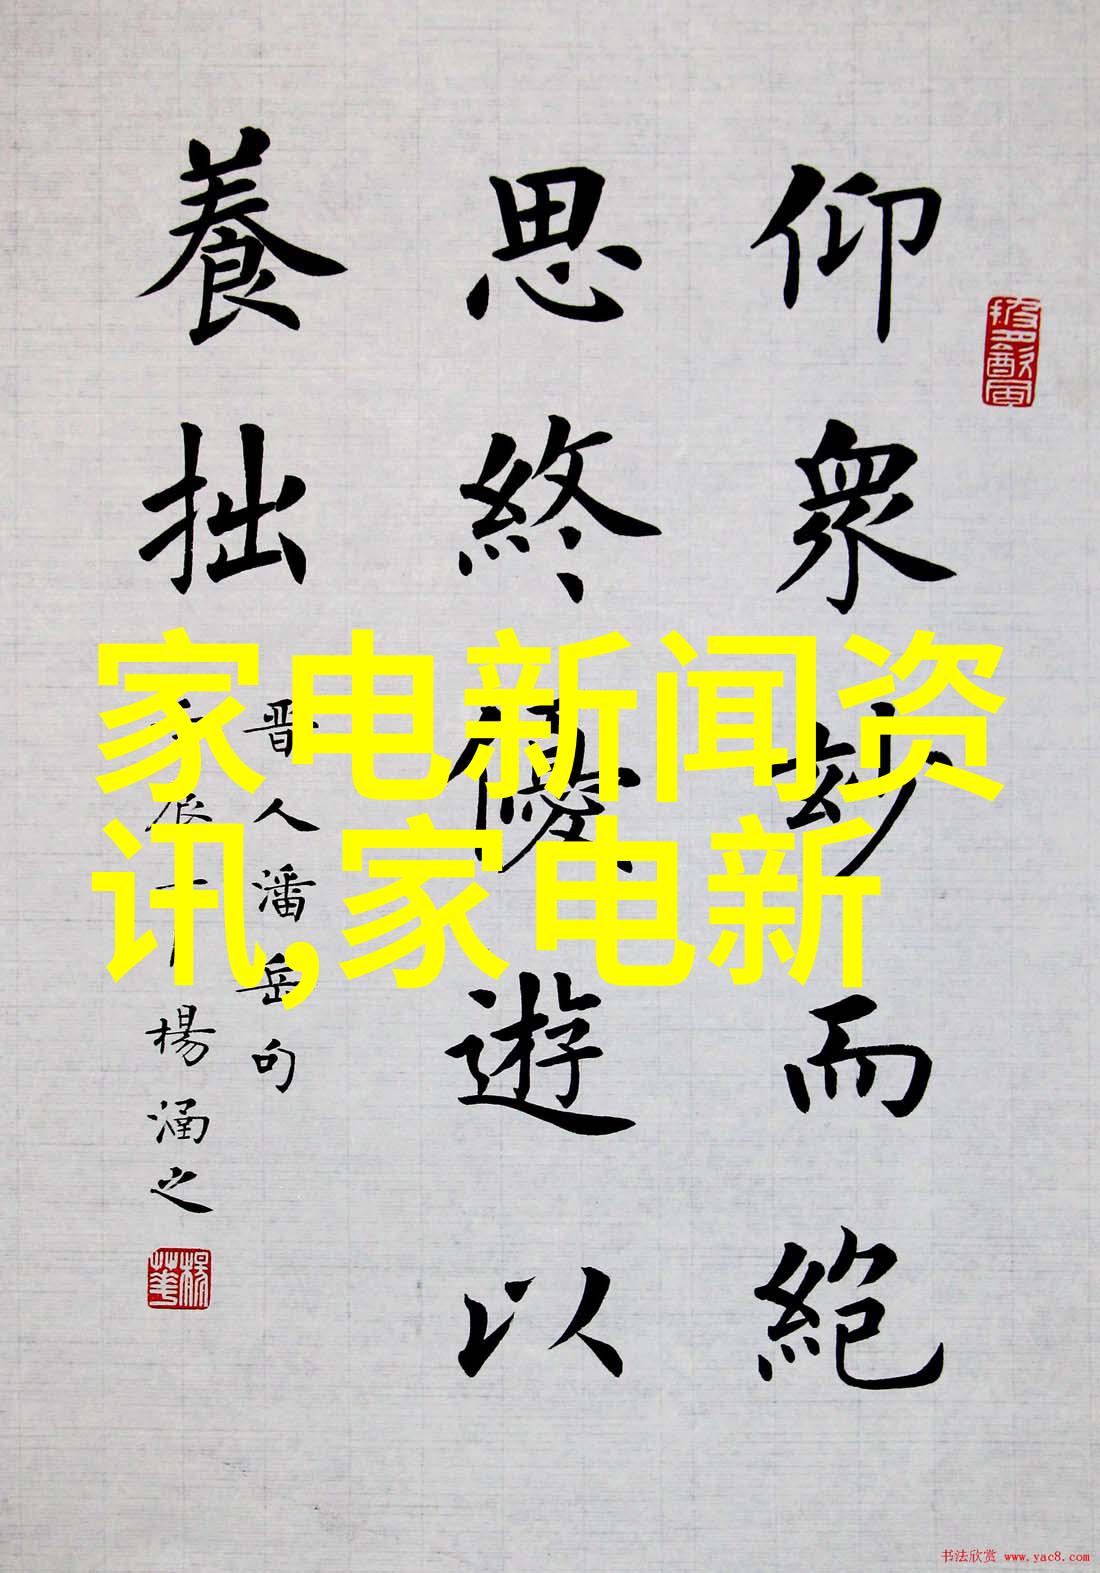 仰眾妙而絕
思終優遊以
養拙
晋人潘岳句
楊涵之
家电新闻资
讯,家电新
书法欣赏 www.yac8.com